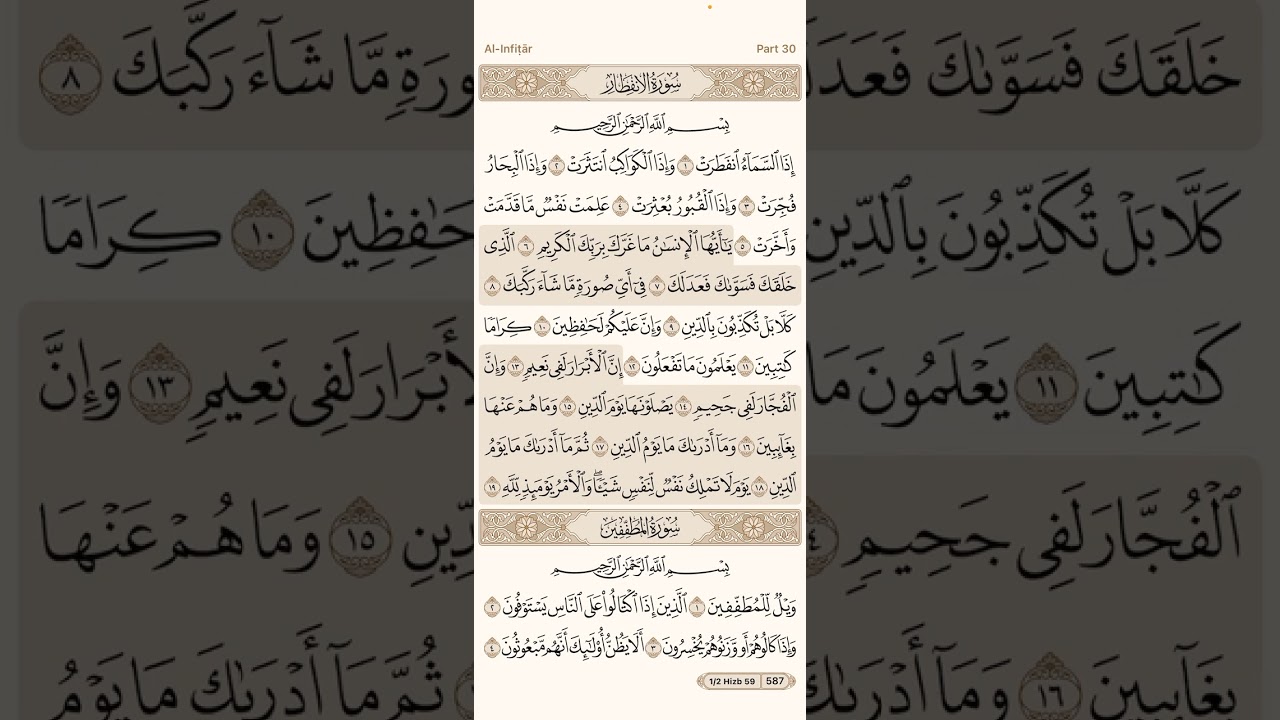 Al-Infiṭār Part 30
سُورَةُ الِانفِطَارِ
بِسْمِ ٱللَّهِ ٱلرَّحْمَٰنِ ٱلرَّحِيمِ
إِذَا ٱلسَّمَآءُ ٱنفَطَرَتْ ١ وَإِذَا ٱلْكَوَاكِبُ ٱنتَثَرَتْ ٢ وَإِذَا ٱلْبِحَارُ
فُجِّرَتْ ٣ وَإِذَا ٱلْقُبُورُ بُعْثِرَتْ ٤ عَلِمَتْ نَفْسٌ مَّا قَدَّمَتْ
وَأَخَّرَتْ ٥ يَٰٓأَيُّهَا ٱلْإِنسَٰنُ مَا غَرَّكَ بِرَبِّكَ ٱلْكَرِيمِ ٦ ٱلَّذِى
خَلَقَكَ فَسَوَّىٰكَ فَعَدَلَكَ ٧ فِىٓ أَىِّ صُورَةٍ مَّا شَآءَ رَكَّبَكَ ٨
كَلَّا بَلْ تُكَذِّبُونَ بِٱلدِّينِ ٩ وَإِنَّ عَلَيْكُمْ لَحَٰفِظِينَ ١٠ كِرَامًا
كَٰتِبِينَ ١١ يَعْلَمُونَ مَا تَفْعَلُونَ ١٢ إِنَّ ٱلْأَبْرَارَ لَفِى نَعِيمٍ ١٣ وَإِنَّ
ٱلْفُجَّارَ لَفِى جَحِيمٍ ١٤ يَصْلَوْنَهَا يَوْمَ ٱلدِّينِ ١٥ وَمَا هُمْ عَنْهَا
بِغَآئِبِينَ ١٦ وَمَآ أَدْرَىٰكَ مَا يَوْمُ ٱلدِّينِ ١٧ ثُمَّ مَآ أَدْرَىٰكَ مَا يَوْمُ
ٱلدِّينِ ١٨ يَوْمَ لَا تَمْلِكُ نَفْسٌ لِّنَفْسٍ شَيْـًٔا ۖ وَٱلْأَمْرُ يَوْمَئِذٍ لِّلَّهِ ١٩
سُورَةُ المُطَفِّفِينَ
بِسْمِ ٱللَّهِ ٱلرَّحْمَٰنِ ٱلرَّحِيمِ
وَيْلٌ لِّلْمُطَفِّفِينَ ١ ٱلَّذِينَ إِذَا ٱكْتَالُوا۟ عَلَى ٱلنَّاسِ يَسْتَوْفُونَ ٢
وَإِذَا كَالُوهُمْ أَو وَّزَنُوهُمْ يُخْسِرُونَ ٣ أَلَا يَظُنُّ أُو۟لَٰٓئِكَ أَنَّهُم مَّبْعُوثُونَ ٤
1/2 Hizb 59 587